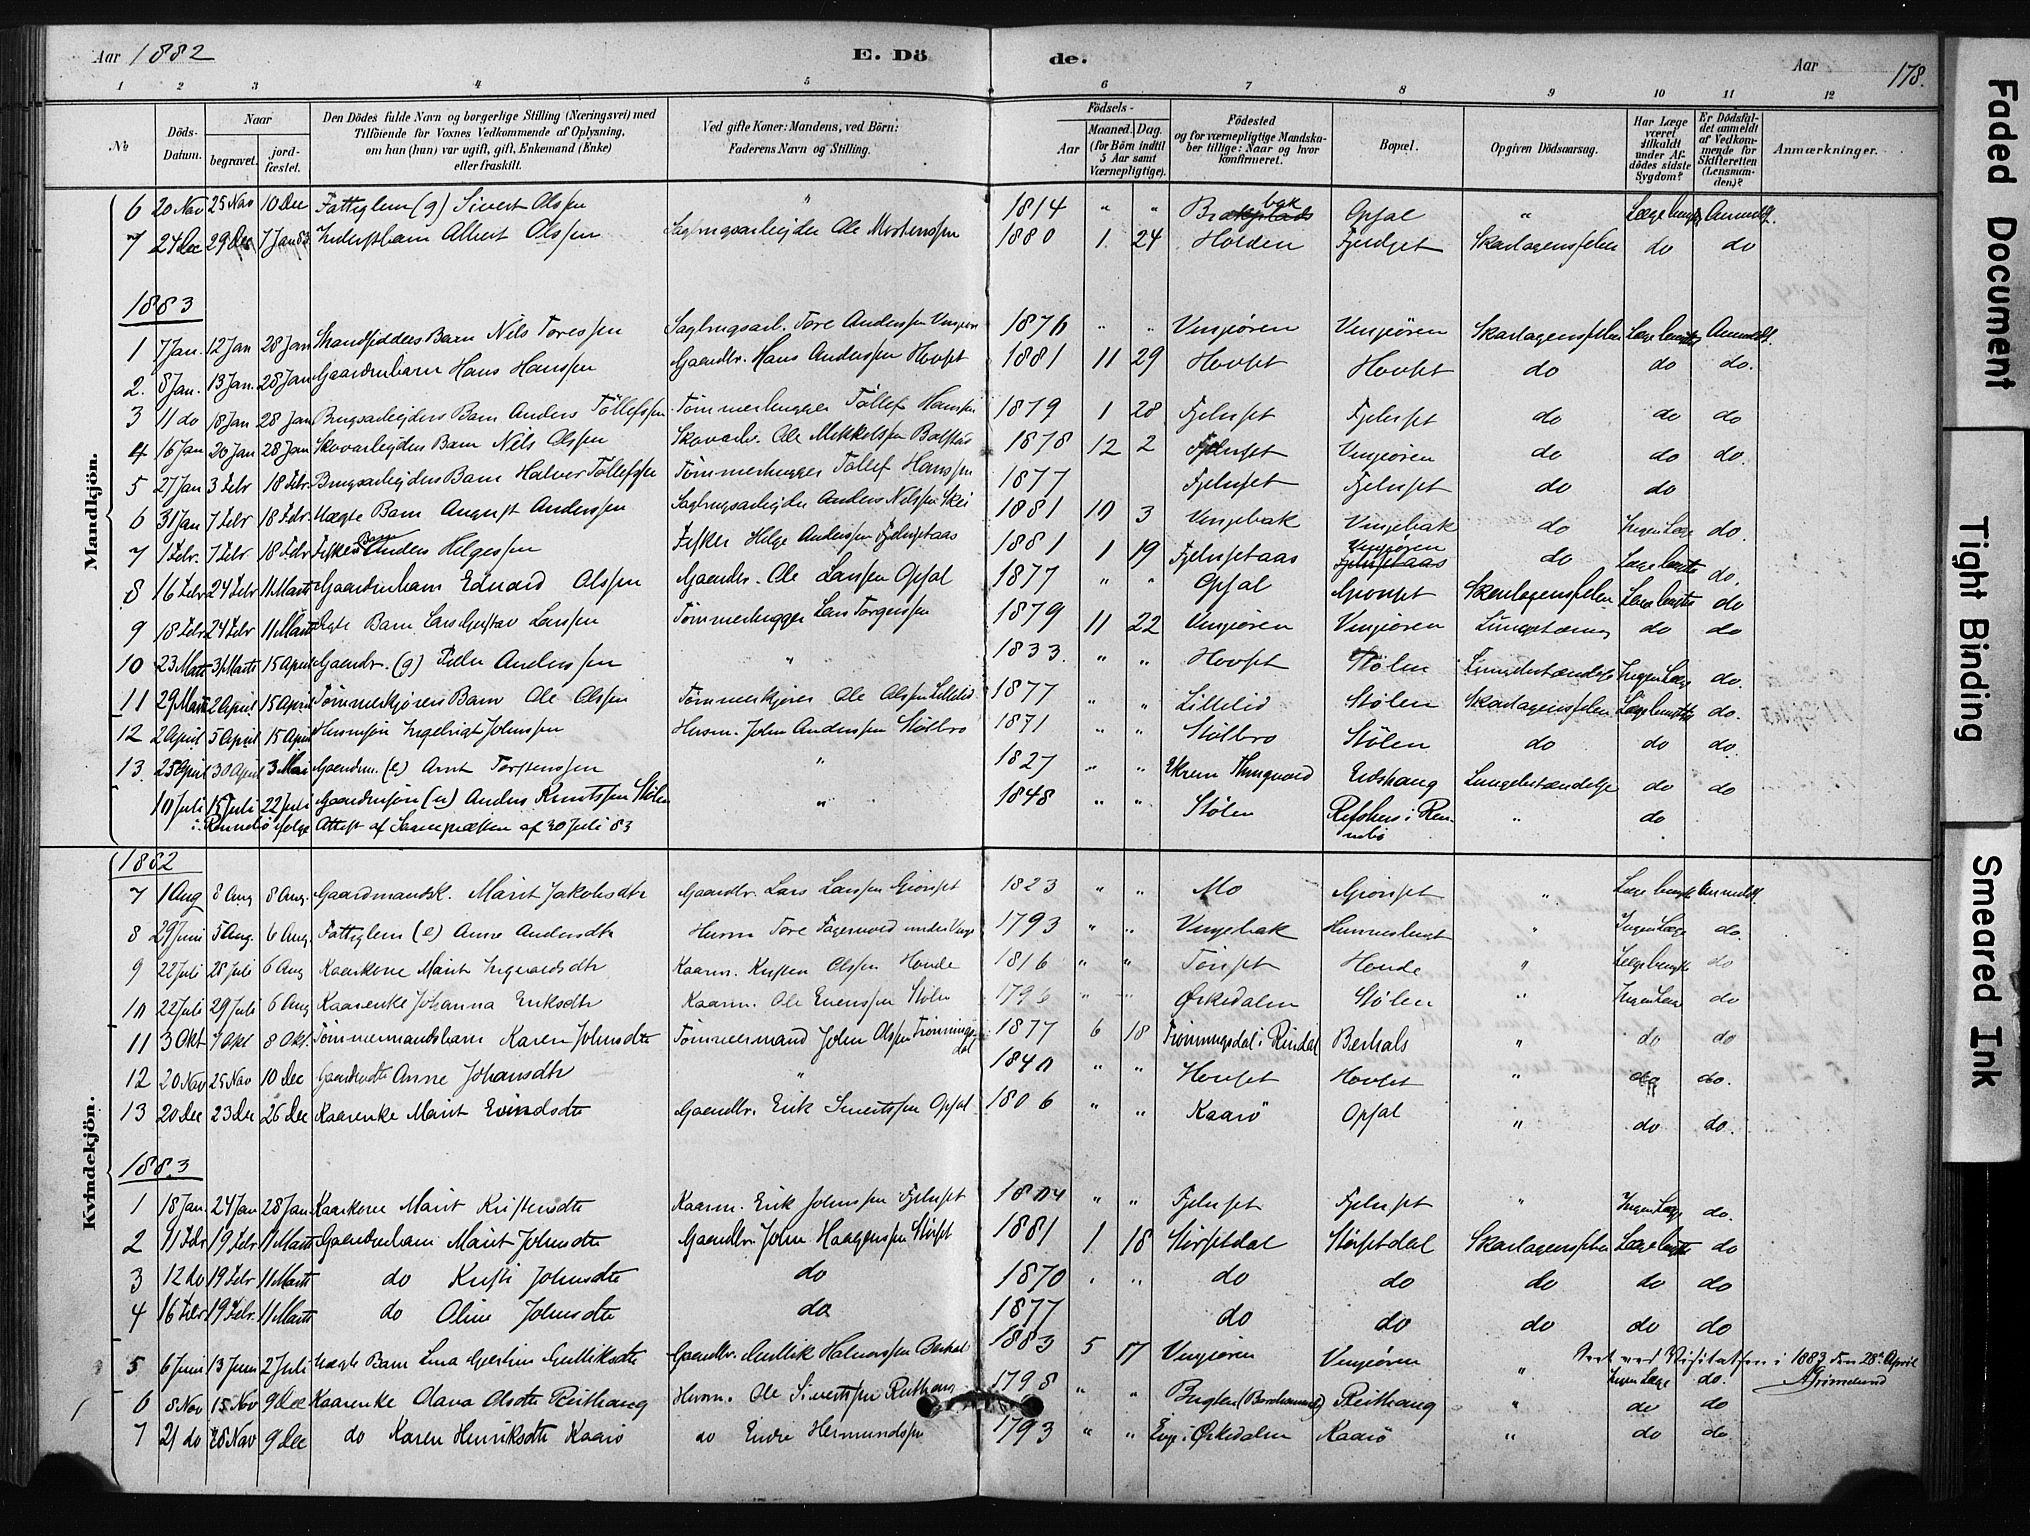 Aar 1882 E. Döde. Aar 178.
1 2 3 4 5 6 7 8 9 10 11 12
№ Döds-Datum. Naar begravet. jordfæstet. Den Dödes fulde Navn og borgerlige Stilling (Næringsvei) med Tilföiende for Voxnes Vedkommende af Oplysning, om han (hun) var ugift, gift, Enkemand (Enke) eller fraskilt. Ved gifte Koner: Mandens, ved Börn: Faderens Navn og Stilling. Födsels- Aar Maaned. Dag. (for Börn indtil 5 Aar samt Værnepligtige). Födested og for værnepligtige Mandskaber tillige: Naar og hvor konfirmeret. Bopæl. Opgiven Dödsaarsag. Har Læge været tilkaldt under Afdödes sidste Sygdom? Er Dödsfaldet anmeldt af Vedkommende for Skifteretten (Lensmanden)? Anmærkninger.
Mandkjön.
6 20 Nov 25 Nov 10 Dec Fattiglem (g) Sivert Olssen " 1814 " " Opsal " Læge benyttet Anmeldt.
7 24 Dec 29 Dec 7 Jan 83 Albert Olssen Sagbrugsarbejder Ole Mortenssen 1880 1 24 Holden Skarlagensfeber do do
1883
1 7 Jan. 12 Jan 28 Jan Strandsidders Barn Nils Toressen Sagbrugsarb. Tore Anderssen Vinjeøren 1876 " " Vinjeøren Vinjeøren Skarlagensfeber Læge benyttet Anmeldt.
2. 8 Jan. 13 Jan. 28 Jan Gaardmbarn Hans Hanssen Gaardbr. Hans Anderssen Hovset 1881 11 29 Hovset Hovset do do do.
3 11 do 18 Jan 28 Jan Brugsarbejders Barn Anders Tøllefssen Tømmerhugger Tøllef Hanssen 1879 1 28 Fjelnset Fjelnset do do do
4 16 Jan 20 Jan 28 Jan Skovarbejders Barn Nils Olssen Skovarb. Ole Mikkelssen 1878 12 2 Fjelnset Vinjeøren do do do.
5 27 Jan 3 Febr 18 Febr. Brugsarbejders Barn Halvor Tøllefssen Tømmerhugger Tøllef Hanssen 1877 Fjelnset Fjelnset do do
6 31 Jan 7 Febr 18 Febr. Uægte Barn August Anderssen Sagbrugsarbejder Anders Nilssen Skei 1881 10 3 Vinjebak Vinjebak do Ingen Læge do.
7 1 Febr. 7 Febr 18 Febr Fiskers Barn Anders Helgessen Fisker Helge Anderssen Fjelnsetaas 1881 1 19 Fjelnsetaas Vinjeøren Fjelnsetaas do Læge benyttet do.
8 16 Febr 24 Febr 11 Marts Gaardmbarn Edvard Olssen Gaardbr. Ole Larssen Opsal 1877 " " Opsal Gjønset Skarlagensfeber Læge benyttet do
9 18 Febr 24 Febr 11 Marts Barn Lars Gustav Larssen Tømmerhugger Lars Torgerssen 1879 11 22 Vinjeøren Vinjeøren Lungetæring do do
10 23 Marts 31 Marts 15 April Gaardbr. (g) Peder Anderssen " 1833. " " Hovset Stølen Lungebetændelse Ingen Læge do.
11 29 Marts 2 April. 15 April Tømmerkjørers Barn Ole Olssen Tømmerkjører Ole Olssen Lillelid 1877 " " Lillelid Stølen Skarlagensfeber Læge benyttet do.
12 2 April 5 April 15 April Husmsøn Ingebrigt Johnssen Husm. John Anderssen Stølbro 1871 " " Stølbro Stølen do do do.
13. 25 April 30 April 3 Mai Gaardm. (e) Arnt Torstenssen " 1827 " " Lungebetændelse do do
10 Juli 15 Juli 22 Juli Gaardmsøn (u) Anders Knutssen Stølen " 1848 " " Stølen Refshus i Ren- " do
i Rennebo ifølge Attest af Sognepræsten af 30 Juli 83 nebo
Kvindekjön.
1882
7 1 Aug 8 Aug 8 Aug. Gaardmandsk. Marit Jakobsdtr Gaardbr. Lars Larssen Gjønset 1823 " " Mo Gjønset " Læge benyttet Anmeldt.
8 29 Juni 5 Aug. 6 Aug. Fattiglem (e) Anne Andersdtr Husm Tore Fagervold under Vinje 1793 " " Vinjebak " Ingen Læge do.
9 22 Juli 28 Juli 6 Aug Kaarkone Marit Ingvaldsdtr Kaarm. Kristen Olssen Honde 1816 " " Tønset Honde " Læge benyttet do
10 22 Juli 29 Juli 6 Aug Kaarenke Johanna Eriksdtr Kaarm. Ole Evenssen Stølen 1796 " " Ørkedalen Stølen " Ingen Læge do
11 3 Okt 7 Okt 8 Okt. Tømmermandsbarn Karen Johnsdtr Tømmermand John Olssen Trønningsdal 1877 6 18 Trønningsdal i Rindal Berhals " do do
12 20 Nov 25 Nov 10 Dec Anne Johansdtr " 1840 " " Hovset Hovset " do do.
13 20 Dec 23 Dec 26 Dec Kaarenke Marit Eivindsdtr Gaardbr. Erik Sivertssen Opsal 1806 " " Kaarø Opsal " do do.
1883
1 18 Jan. 24 Jan 28 Jan Kaarkone Marit Kristensdtr Kaarm. Erik Johnssen Fjelnset 1804 " " Fjelnset Fjelnset " Ingen Læge do.
2 11 Febr 19 Febr 11 Marts Gaardmbarn Marit Johnsdtr Gaardbr. John Haagenssen Størset 1881 1 18 Størsetdal Størsetdal Skarlagensfeber Læge benyttet do
3 12 do 19 Febr 11 Marts do Kristi Johnsdtr do 1870 " " do do do do do
4 16 Febr 19 Febr. 11 Marts do Oline Johnsdtr do 1877 do do do do do
5 6 Juni 13 Juni 2 Juli Uægte Barn Gulliksdtr Gaardbr. Gullik Halvorssen Berhals 1883 5 17 Vinjeøren Vinjeøren " Ingen Læge do. Seet ved Visitatsen i 1883 den 28de April
6 8 Nov 15 Nov 9 Dec Kaarenke Olava Olsdtr Reithaug Husm. Ole Sivertssen Reithaug 1798 " " Reithaug " do do
7 21 do 28 Nov 9 Dec do Karen Henriksdtr Kaarø do Endre Hermundssen 1793 " " i Ørkedalen Kaarø " do do
Faded Document
Tight Binding
Smeared Ink